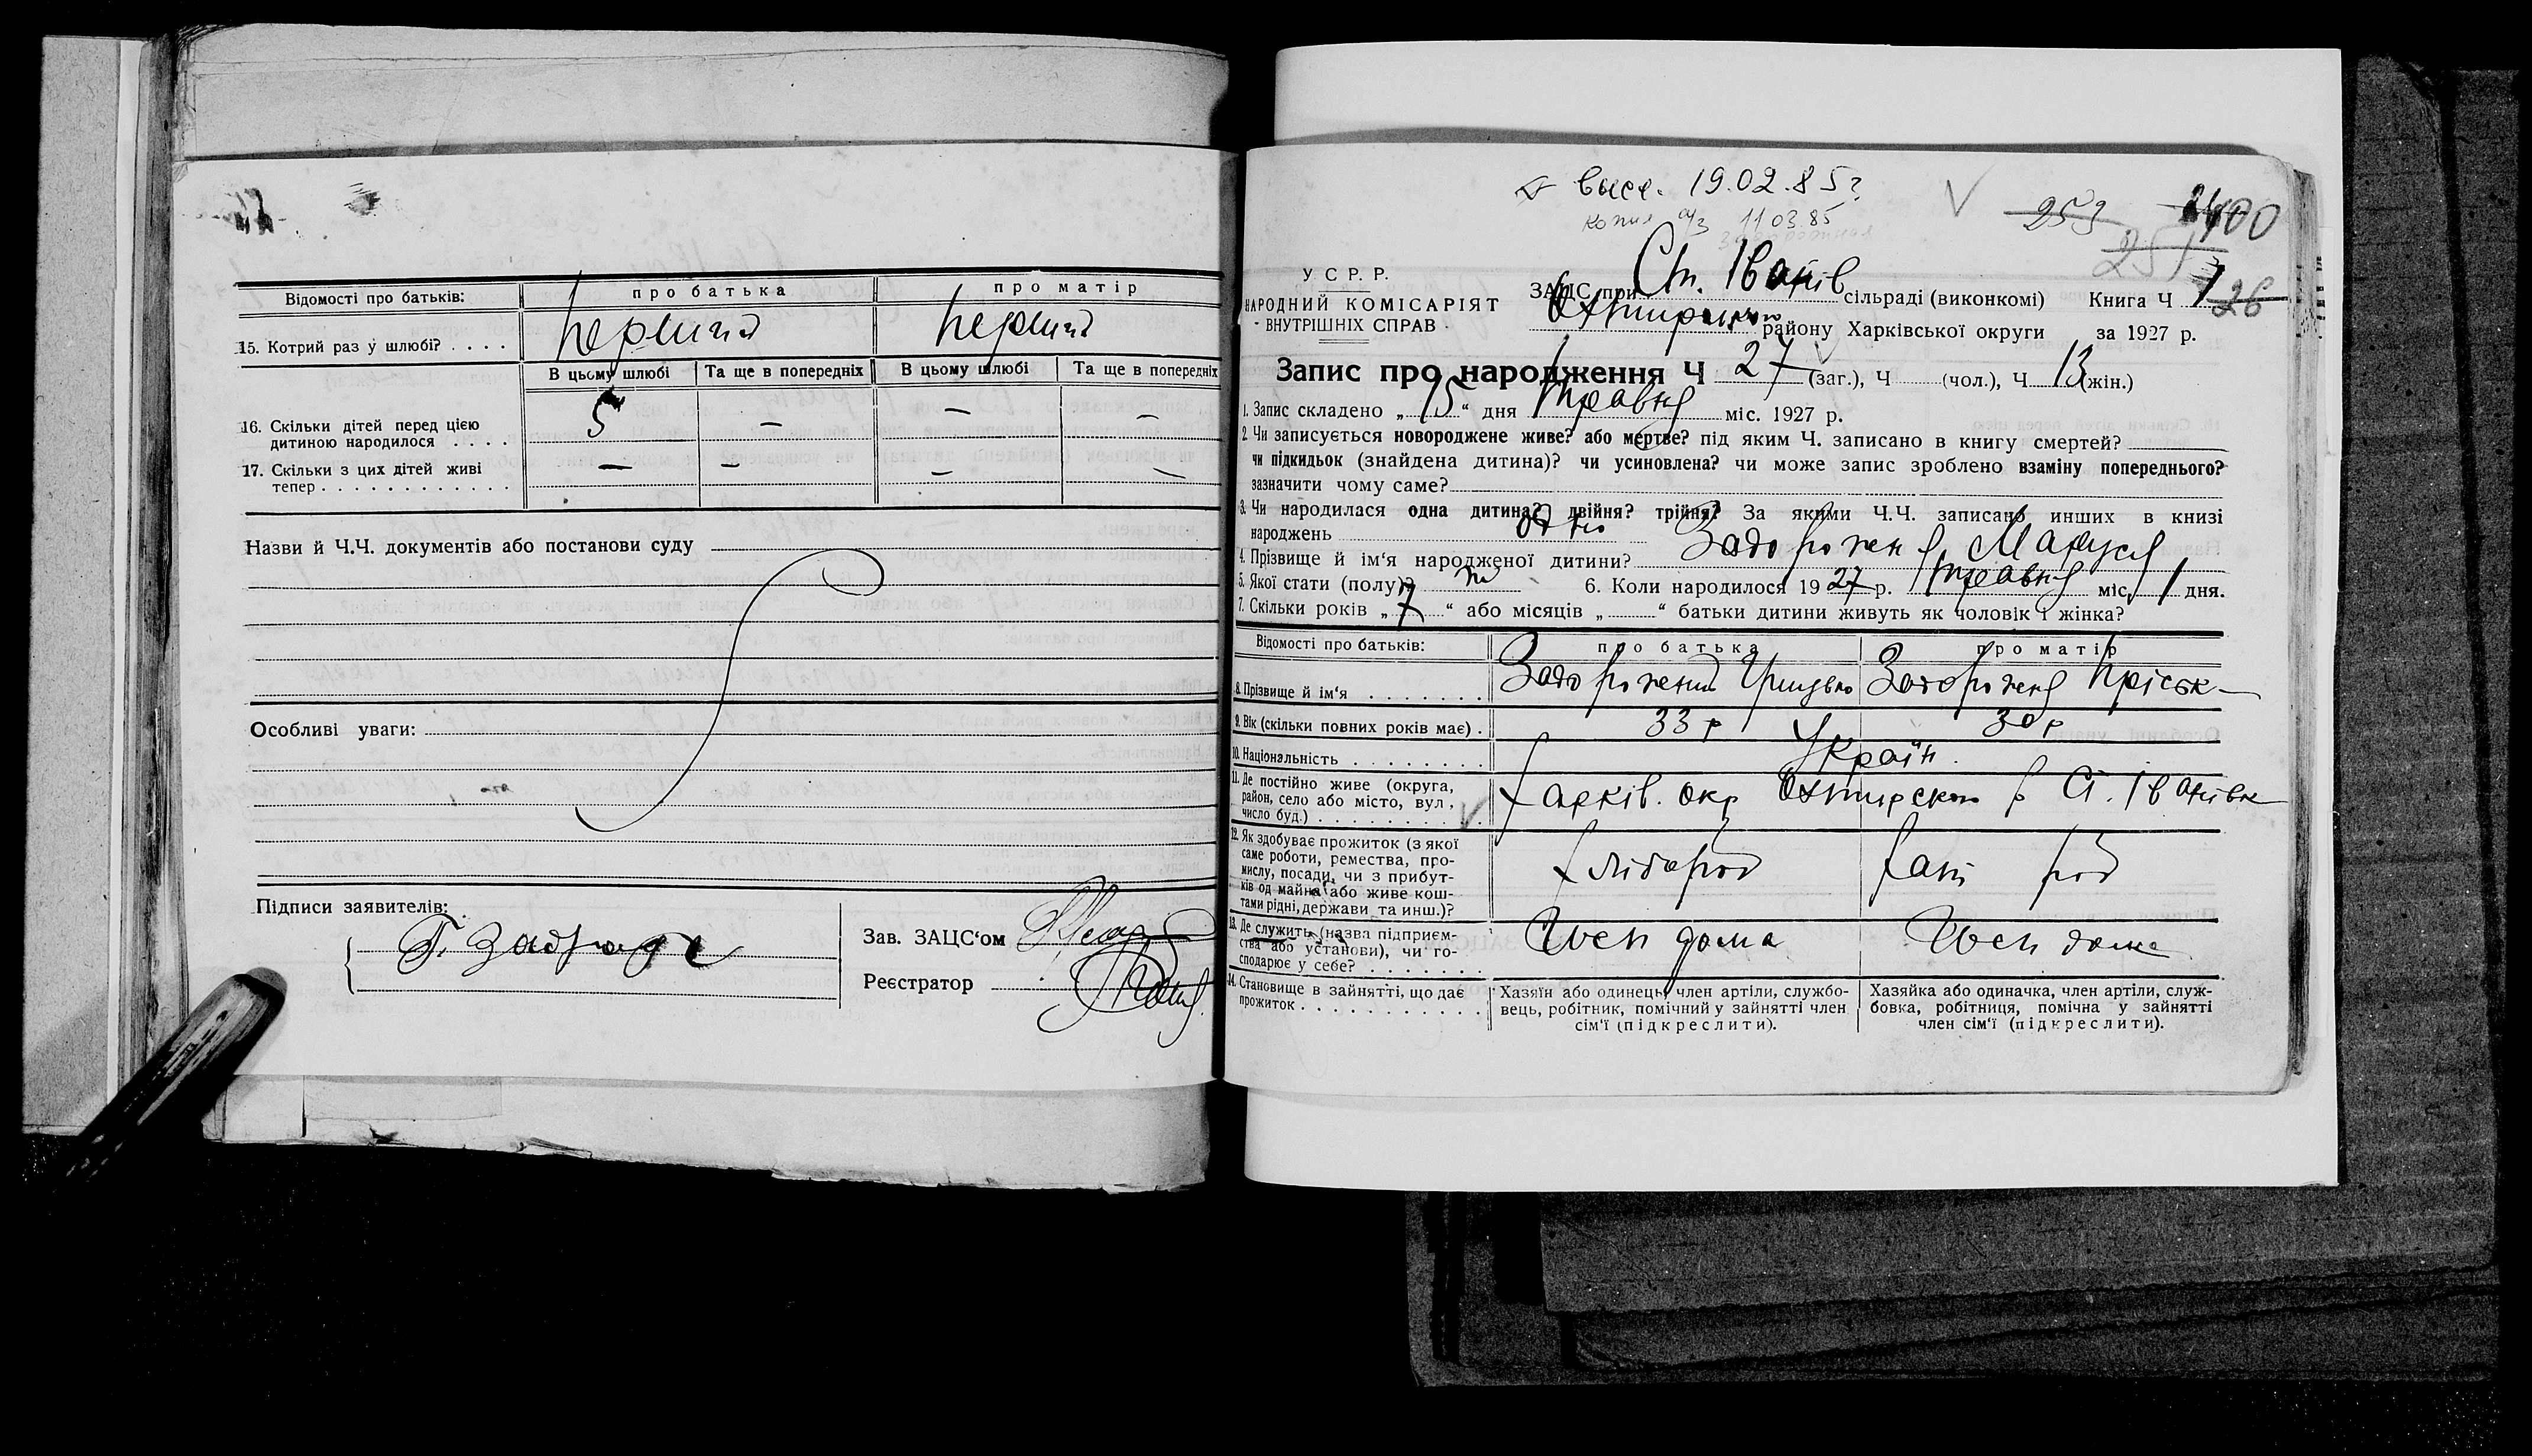 Відомості про батьків: про батька про матір
15. Котрий раз у шлюбі? . . . . перший перший
В цьому шлюбі Та ще в попередніх В цьому шлюбі Та ще в попередніх
16. Скільки дітей перед цією дитиною народилося . . . . 5 — — —
17. Скільки з цих дітей живі тепер . . . . . . . . . . . . — — — —
Назви й Ч.Ч. документів або постанови суду
Особливі уваги:
Підписи заявителів:
Зав. ЗАЦС‘ом
Реєстратор
19.02.85
копия 11 03 85
253
251
400
У С Р. Р.
НАРОДНИЙ КОМІСАРІЯТ
ВНУТРІШНІХ СПРАВ
ЗАЦС при Ст. Іванів сільраді (виконкомі) Книга Ч 1 26
району Харківської округи за 1927 р.
Запис про народження Ч 27 (заг.), Ч (чол.), Ч 13 (жін.)
1. Запис складено „ 15 “ дня травня міс. 1927 р.
2. Чи записується новороджене живе? або мертве? під яким Ч. записано в книгу смертей?
чи підкидьок (знайдена дитина)? чи усиновлена? чи може запис зроблено взаміну попереднього?
зазначити чому саме?
3. Чи народилася одна дитина? двійня? трійня? За якими Ч.Ч. записано инших в книзі
народжень одно
4. Прізвище й ім‘я народженої дитини? Задорожня Маруся
5. Якої стати (полу)? ж 6. Коли народилося 1927 р. травня міс. 1 дня.
7. Скільки років „ 7 “ або місяців „ “ батьки дитини живуть як чоловік і жінка?
Відомості про батьків: про батька про матір
8. Прізвище й ім‘я . . . . . . . Задорожний Грицько Задорожня Пріська
9. Вік (скільки повних років має) . 33 р 30 р
10. Національність . . . . . . . . Україн.
11. Де постійно живе (округа, район, село або місто, вул, число буд.) . . . . . . . . . Харків. окр Охтирсько р Ст. Іванівка
12. Як здобуває прожиток (з якої саме роботи, ремества, промислу, посади, чи з прибутків од майна або живе коштами рідні, держави та инш.)? хлібороб
13. Де служить (назва підприємства або установи), чи господарює у себе? . . . . . . . член дома член дома
14. Становище в зайнятті, що дає прожиток . . . . . . . . . . . Хазяїн або одинець, член артіли, службовець, робітник, помічний у зайнятті член сім‘ї (підкреслити). Хазяйка або одиначка, член артіли, службовка, робітниця, помічна у зайнятті член сім‘ї (підкреслити).